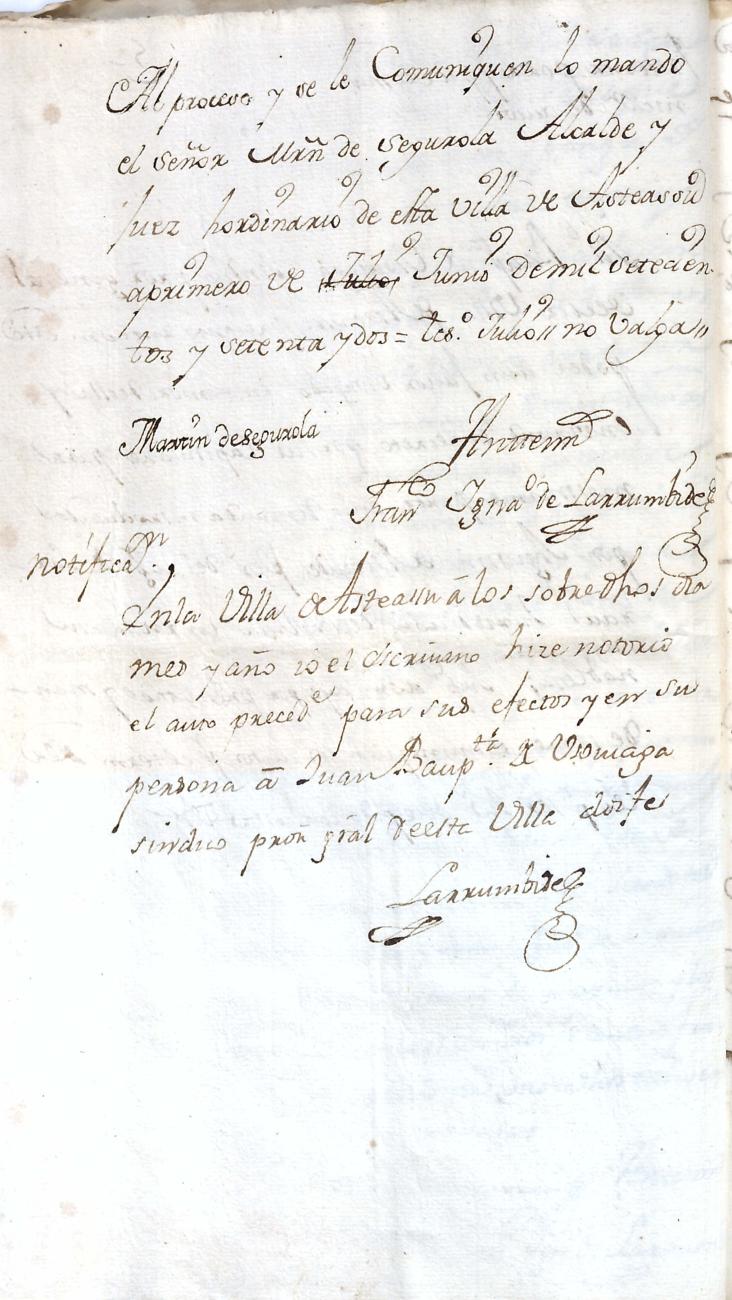 Al proceso y se le Comuniquen lo mando
el señor Mrñ de segurola Alcalde y
Juez hordinario de esta Villa de Asteassu
a primero de Julio, Junio de mil setecien
tos y setenta y dos = tes.º Julio // no Valga //
Martin de segurola
Antte mi
Franco Ignaº de Larrumbide
notificaon.
En la Villa de Asteassu á los sobre dhos dia
mes y año io el escrivano hize notorio
el auto precede para sus efectos y en su
persona á Juan Baupta. de
sindico pror gral de esta Villa doi fe
Larrumbide